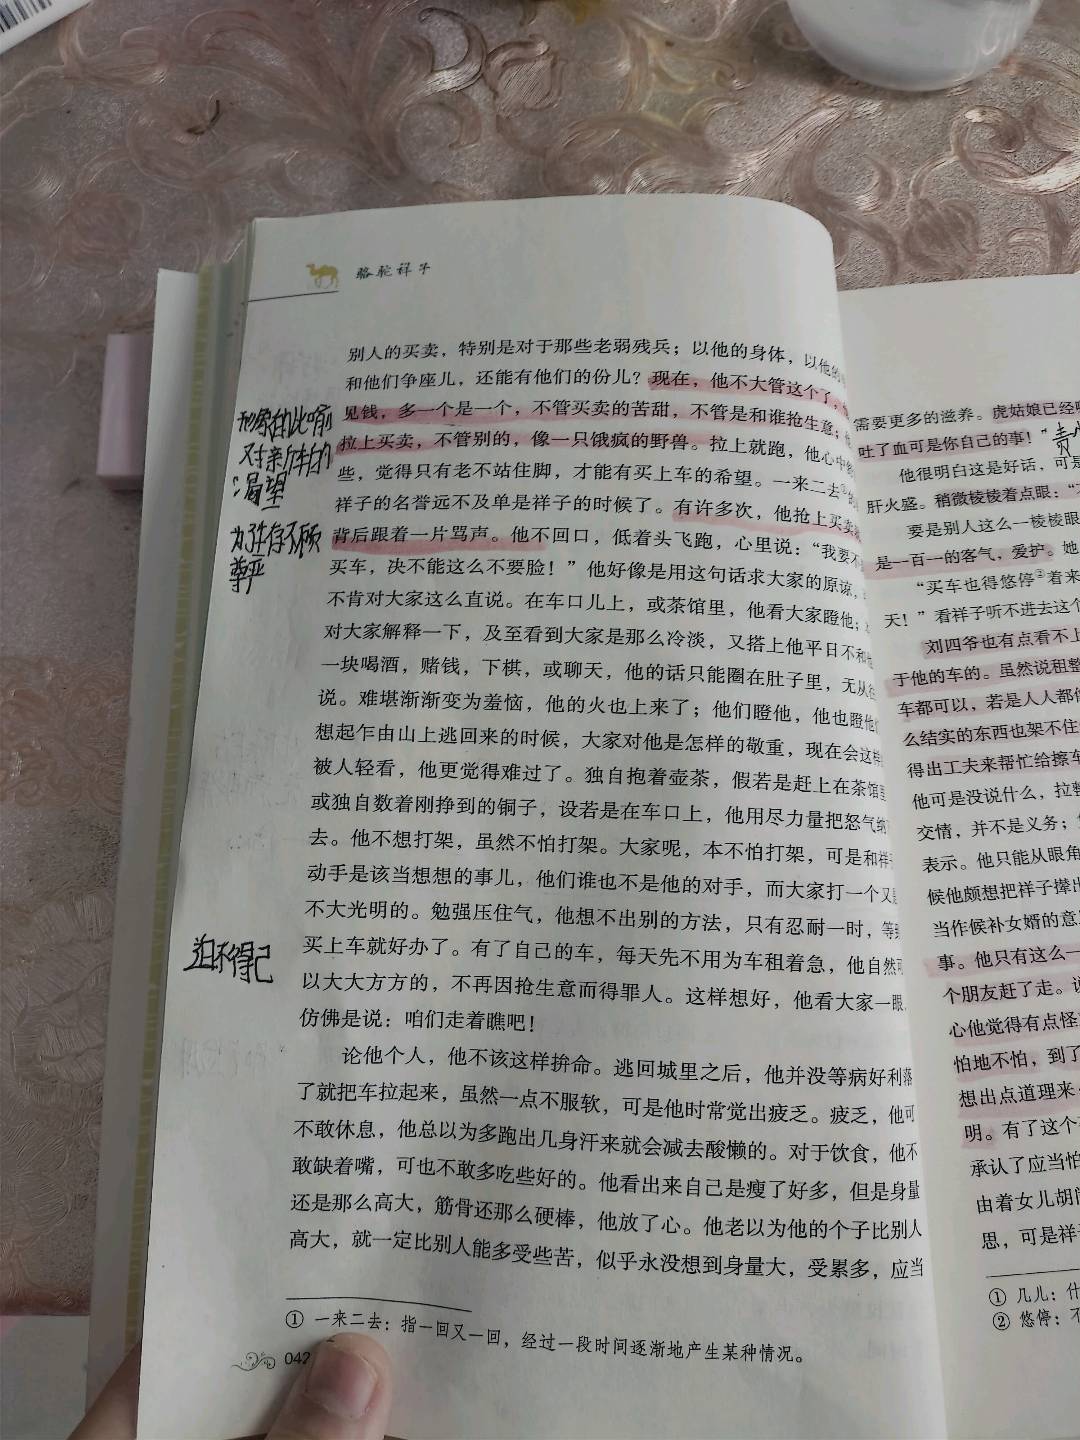 骆驼祥子
别人的买卖，特别是对于那些老弱残兵；以他的身体，以他的
和他们争座儿，还能有他们的份儿？现在，他不大管这个了，
见钱，多一个是一个，不管买卖的苦甜，不管是和谁抢生意；
拉上买卖，不管别的，像一只饿疯的野兽。拉上就跑，他心中
些，觉得只有老不站住脚，才能有买上车的希望。一来二去①的
祥子的名誉远不及单是祥子的时候了。有许多次，他抢上买卖
背后跟着一片骂声。他不回口，低着头飞跑，心里说：“我要不
买车，决不能这么不要脸！”他好像是用这句话求大家的原谅，
不肯对大家这么直说。在车口儿上，或茶馆里，他看大家瞪他；
对大家解释一下，及至看到大家是那么冷淡，又搭上他平日不和
一块喝酒，赌钱，下棋，或聊天，他的话只能圈在肚子里，无从
说。难堪渐渐变为羞恼，他的火也上来了；他们瞪他，他也瞪他
想起乍由山上逃回来的时候，大家对他是怎样的敬重，现在会这样
被人轻看，他更觉得难过了。独自抱着壶茶，假若是赶上在茶馆里
或独自数着刚挣到的铜子，设若是在车口上，他用尽力量把怒气纳
去。他不想打架，虽然不怕打架。大家呢，本不怕打架，可是和祥
动手是该当想想的事儿，他们谁也不是他的对手，而大家打一个又
不大光明的。勉强压住气，他想不出别的方法，只有忍耐一时，等
买上车就好办了。有了自己的车，每天先不用为车租着急，他自然可
以大大方方的，不再因抢生意而得罪人。这样想好，他看大家一眼，
仿佛是说：咱们走着瞧吧！
论他个人，他不该这样拚命。逃回城里之后，他并没等病好利落
了就把车拉起来，虽然一点不服软，可是他时常觉出疲乏。疲乏，他可
不敢休息，他总以为多跑出几身汗来就会减去酸懒的。对于饮食，他不
敢缺着嘴，可也不敢多吃些好的。他看出来自己是瘦了好多，但是身量
还是那么高大，筋骨还那么硬棒，他放了心。他老以为他的个子比别人
高大，就一定比别人能多受些苦，似乎永没想到身量大，受累多，应当
① 一来二去：指一回又一回，经过一段时间逐渐地产生某种情况。
042
形象的比喻
对亲们车的
渴望
为了生存不顾
尊严
迫不得已
需要更多的滋养。虎姑娘已经
吐了血可是你自己的事！”
他很明白这是好话，可是
肝火盛。稍微棱棱着点眼：
要是别人这么一棱棱眼
是一百一的客气，爱护。她
“买车也得悠停②着来
天！”看祥子听不进去这个
刘四爷也有点看不上
于他的车的。虽然说租整
车都可以，若是人人都
么结实的东西也架不住
得出工夫来帮忙给擦车
他可是没说什么，拉整
交情，并不是义务；
表示。他只能从眼角
候他颇想把祥子撵出
当作候补女婿的意
事。他只有这么一
个朋友赶了走。说
心他觉得有点怪
怕地不怕，到了
想出点道理来
明。有了这个
承认了应当怕
由着女儿胡闹
思，可是祥
① 几儿：什
② 悠停：不